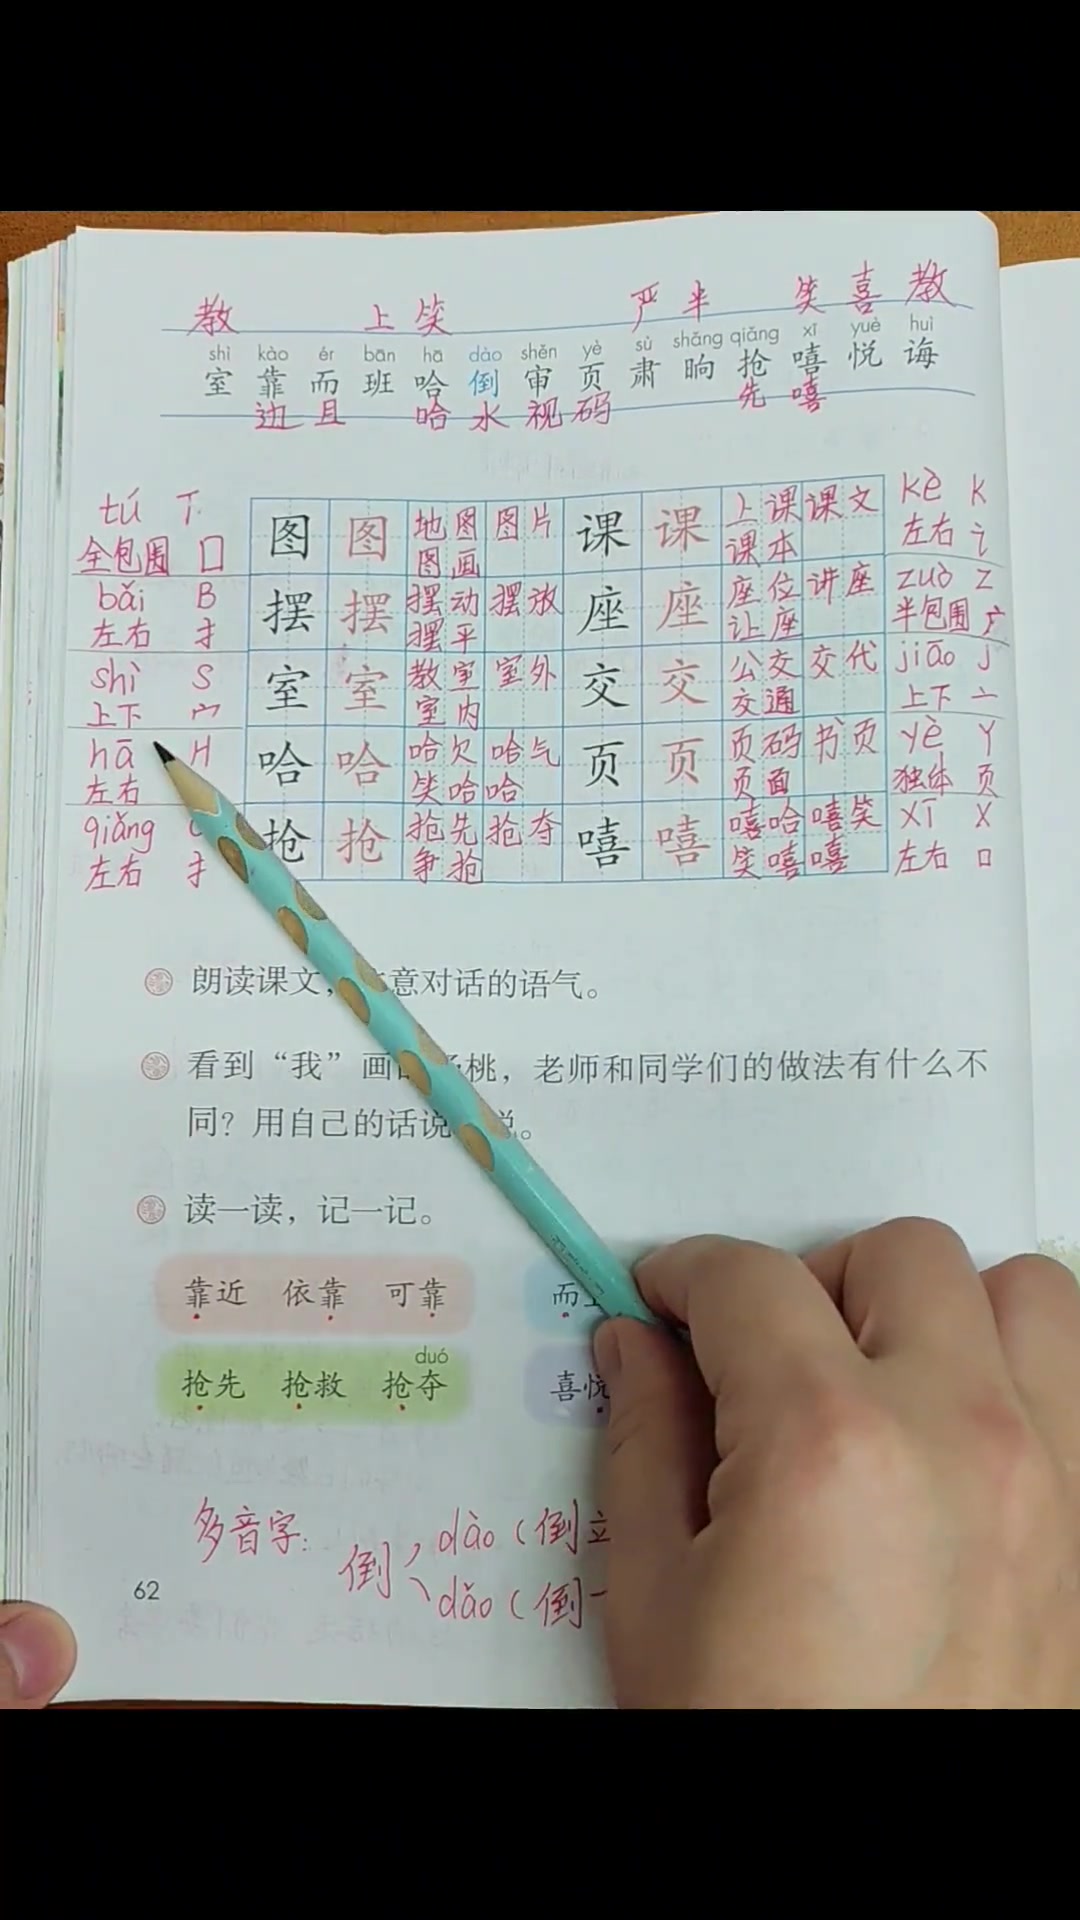 教 上 笑 严 半 笑 喜 教
shì kào ér bān hā dào shěn yè sù shǎng qiǎng xī yuè huì
室 靠 而 班 哈 倒 审 页 肃 晌 抢 嘻 悦 诲
边 且 哈 水 视 码 先 嘻
tú T 图 图 地图 图片 课 课 上课 课文 kè K
全包围 囗 图画 课本 左右 讠
bǎi B 摆 摆 摆动 摆放 座 座 座位 讲座 zuò Z
左右 扌 摆平 让座 半包围 广
shì S 室 室 教室 室外 交 交 公交 交代 jiāo J
上下 宀 室内 交通 上下 亠
hā H 哈 哈 哈欠 哈气 页 页 页码 书页 yè Y
左右 笑哈哈 页面 独体 页
qiǎng 抢 抢 抢先 抢夺 嘻 嘻 嘻哈 嘻笑 xī X
左右 扌 争抢 笑嘻嘻 左右 口
朗读课文，意对话的语气。
看到“我”画桃，老师和同学们的做法有什么不
同？用自己的话说。
读一读，记一记。
靠近 依靠 可靠 而
duó
抢先 抢救 抢夺 喜悦
多音字： 倒 dào（倒立
dǎo（倒一
62